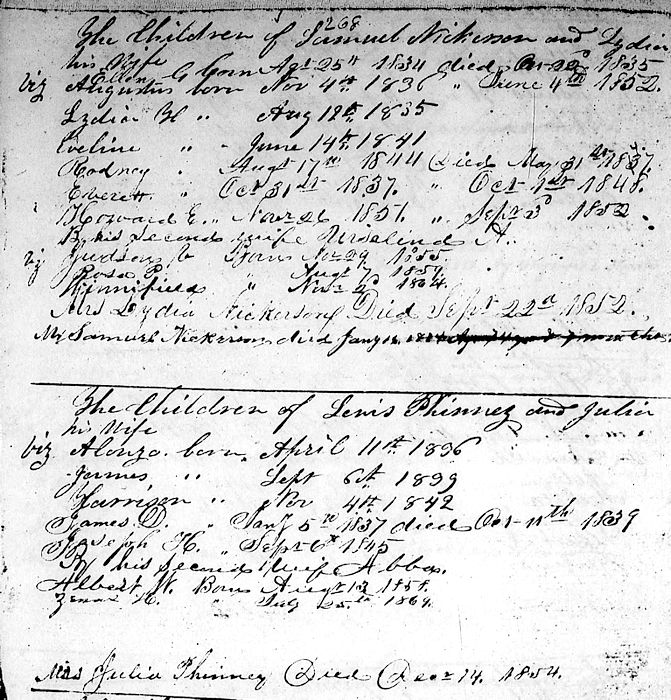 268
The Children of Samuel Nickerson and Lydia
his Wife
Ellen G born Apr 25th 1834 died Oct 22d 1835
viz Augustus born Nov 4th 1836 " June 4th 1852.
Lydia H " Aug 12th 1835
Eveline " June 14th 1841
Rodney " Augt 17th 1844 Died May 31st 1837.
Everett " Oct 31st 1837. " Oct 1st 1848.
Howard E. " Nov 26 1851. " Sept 3d 1852
By his second wife A.
viz Judson Born Nov 29 1855.
Rosa P. " Augt 7 1859.
Winnifield " Nov 2d 1864.
Mrs Lydia Nickerson Died Sept 22d 1852.
Mr Samuel Nickerson died Jany
The Children of Lewis Phinney and Julia
his Wife
viz Alonzo born April 11th 1836
James " Sept 6th 1839
Harrison " Nov 4th 1842
James D. " Jany 5th 1837 died Oct 11th 1839
Joseph H. " Sept 6th 1845
By his second wife Abba.
Albert W. Born Aug 13 1858.
H. " July 25th 1869.
Mrs Julia Phinney Died Decr 14. 1854.